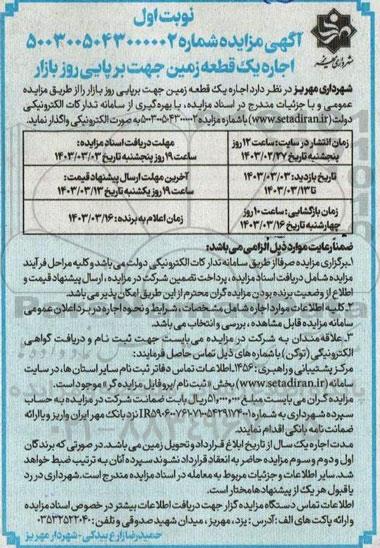 نوبت اول
آگهی مزایده شماره ۵۰۰۳۰۰۵۰۴۳۰۰۰۰۰۲
اجاره یک قطعه زمین جهت برپایی روز بازار
شهرداری مهریز
شهرداری مهریز در نظر دارد اجاره یک قطعه زمین جهت برپایی روز بازار را از طریق مزایده
عمومی و با جزئیات مندرج در اسناد مزایده، با بهره‌گیری از سامانه تدارکات الکترونیکی
دولت (www.setadiran.ir) با شماره مزایده ۵۰۰۳۰۰۵۰۴۳۰۰۰۰۰۲ به صورت الکترونیکی واگذار نماید.
زمان انتشار در سایت: ساعت ۱۲ روز
پنجشنبه تاریخ ۱۴۰۳/۰۲/۲۷
مهلت دریافت اسناد مزایده:
ساعت ۱۹ روز پنجشنبه تاریخ ۱۴۰۳/۰۳/۰۳
تاریخ بازدید: ۱۴۰۳/۰۳/۰۳
تا ۱۴۰۳/۰۳/۱۳
آخرین مهلت ارسال پیشنهاد قیمت:
ساعت ۱۹ روز یکشنبه تاریخ ۱۴۰۳/۰۳/۱۳
زمان بازگشایی: ساعت ۱۰ روز
چهارشنبه تاریخ ۱۴۰۳/۰۳/۱۶
زمان اعلام به برنده: ۱۴۰۳/۰۳/۱۶
ضمنا رعایت موارد ذیل الزامی می‌باشد:
۱ـ برگزاری مزایده صرفا از طریق سامانه تدارکات الکترونیکی دولت می‌باشد و کلیه مراحل فرآیند
مزایده شامل دریافت اسناد مزایده، پرداخت تضمین شرکت در مزایده، ارسال پیشنهاد قیمت و
اطلاع از وضعیت برنده بودن مزایده گران محترم از این طریق امکان پذیر می‌باشد.
۲ـ کلیه اطلاعات موارد اجاره شامل مشخصات، شرایط و نحوه اجاره در برد اعلان عمومی
سامانه مزایده قابل مشاهده، بررسی و انتخاب می‌باشد.
۳ـ علاقه‌مندان به شرکت در مزایده می‌بایست جهت ثبت نام و دریافت گواهی
الکترونیکی (توکن) با شماره‌های ذیل تماس حاصل فرمایند:
مرکز پشتیبانی و راهبری: ۱۴۵۶ـ اطلاعات تماس دفاتر ثبت نام سایر استان‌ها، در سایت
سامانه (www.setadiran.ir) بخش «ثبت نام/پروفایل مزایده‌گر» موجود است.
مزایده گران می بایست مبلغ ریال بابت ضمانت شرکت در مزایده به حساب
سپرده شهرداری به شماره نزد بانک مهر ایران واریز و یا ارائه
ضمانت نامه بانکی اقدام نمایند.
مدت اجاره یک سال از تاریخ ابلاغ قرارداد و تحویل زمین می باشد. در صورتی که برندگان
اول و دوم و سوم مزایده حاضر به انعقاد قرارداد نشوند سپرده آنان به ترتیب ضبط خواهد
شد. سایر اطلاعات و جزئیات مربوط به معامله در اسناد مزایده مندرج است. شهرداری در رد
یا قبول هر یک از پیشنهادها مختار است.
اطلاعات تماس دستگاه مزایده گزار جهت دریافت اطلاعات بیشتر در خصوص اسناد مزایده
و ارائه پاکت های الف: آدرس: یزد، مهریز، میدان شهید صدوقی و تلفن: ۰۳۵۳۲۵۲۲۰۴۰
حمیدرضا زارع بیدکی - شهردار مهریز